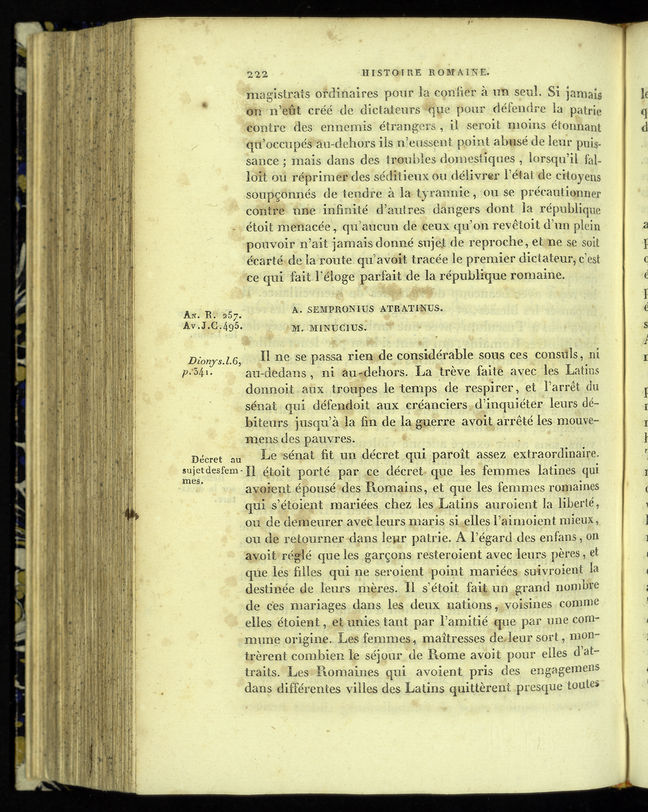 222 HISTOIRE ROMAINE.
magistrats ordinaires pour la confier à un seul. Si jamais
on n'eût créé de dictateurs que pour défendre la patrie
contre des ennemis étrangers, il seroit moins étonnant
qu'occupés au-dehors ils n'eussent point abusé de leur puis-
sance ; mais dans des troubles domestiques, lorsqu'il fal-
loit ou réprimer des séditieux ou délivrer l'état de citoyens
soupçonnés de tendre à la tyrannie, ou se précautionner
contre une infinité d'autres dangers dont la république
étoit menacée, qu'aucun de ceux qu'on revêtoit d'un plein
pouvoir n'ait jamais donné sujet de reproche, et ne se soit
écarté de la route qu'avoit tracée le premier dictateur, c'est
ce qui fait l'éloge parfait de la république romaine.
An. R. 257.
Av. J.C. 495.
A. SEMPRONIUS ATRATINUS.
M. MINUCIUS.
Dionys. l. 6,
p. 341.
Il ne se passa rien de considérable sous ces consuls, ni
au-dedans, ni au-dehors. La trève faite avec les Latins
donnoit aux troupes le temps de respirer, et l'arrêt du
sénat qui défendoit aux créanciers d'inquiéter leurs dé-
biteurs jusqu'à la fin de la guerre avoit arrêté les mouve-
mens des pauvres.
Décret au
sujet des fem-
mes.
Le sénat fit un décret qui paroît assez extraordinaire.
Il étoit porté par ce décret que les femmes latines qui
avoient épousé des Romains, et que les femmes romaines
qui s'étoient mariées chez les Latins auroient la liberté,
ou de demeurer avec leurs maris si elles l'aimoient mieux,
ou de retourner dans leur patrie. A l'égard des enfans, on
avoit réglé que les garçons resteroient avec leurs pères, et
que les filles qui ne seroient point mariées suivroient la
destinée de leurs mères. Il s'étoit fait un grand nombre
de ces mariages dans les deux nations, voisines comme
elles étoient, et unies tant par l'amitié que par une com-
mune origine. Les femmes, maîtresses de leur sort, mon-
trèrent combien le séjour de Rome avoit pour elles d'at-
traits. Les Romaines qui avoient pris des engagemens
dans différentes villes des Latins quittèrent presque toutes